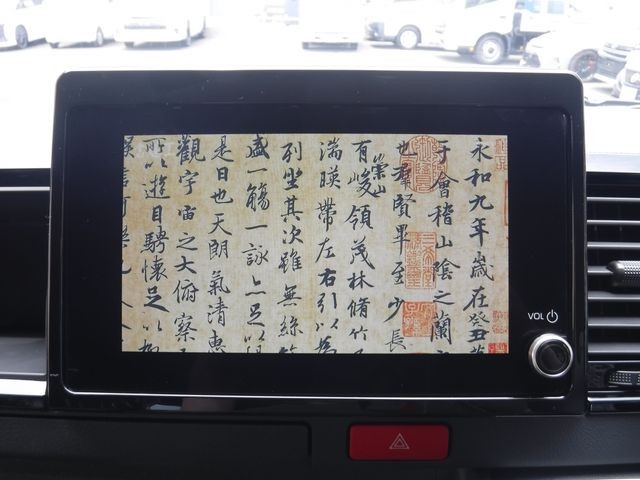 永和九年歲在癸丑暮
于會稽山陰之蘭
也羣賢畢至少長
有崇山峻領茂林脩竹
湍暎帶左右引以為
列坐其次雖無絲竹
盛一觴一詠亦足以暢
是日也天朗氣清惠
觀宇宙之大俯察
所以遊目騁懷足以極
娛信可樂也
VOL